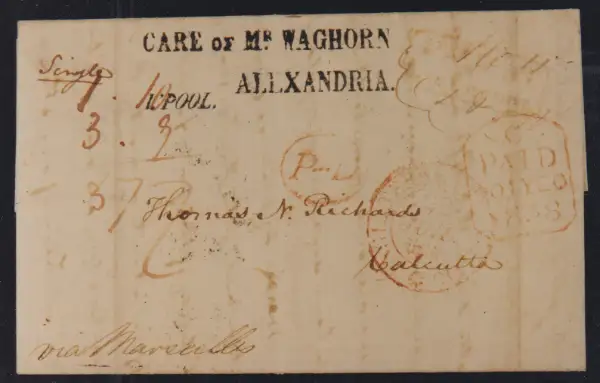 CARE OF MR WAGHORN
ALLXANDRIA.
Single
1. 10
L'POOL.
3. 9
Pa
PAID
37
Thomas N. Richards
Calcutta
via Marseilles